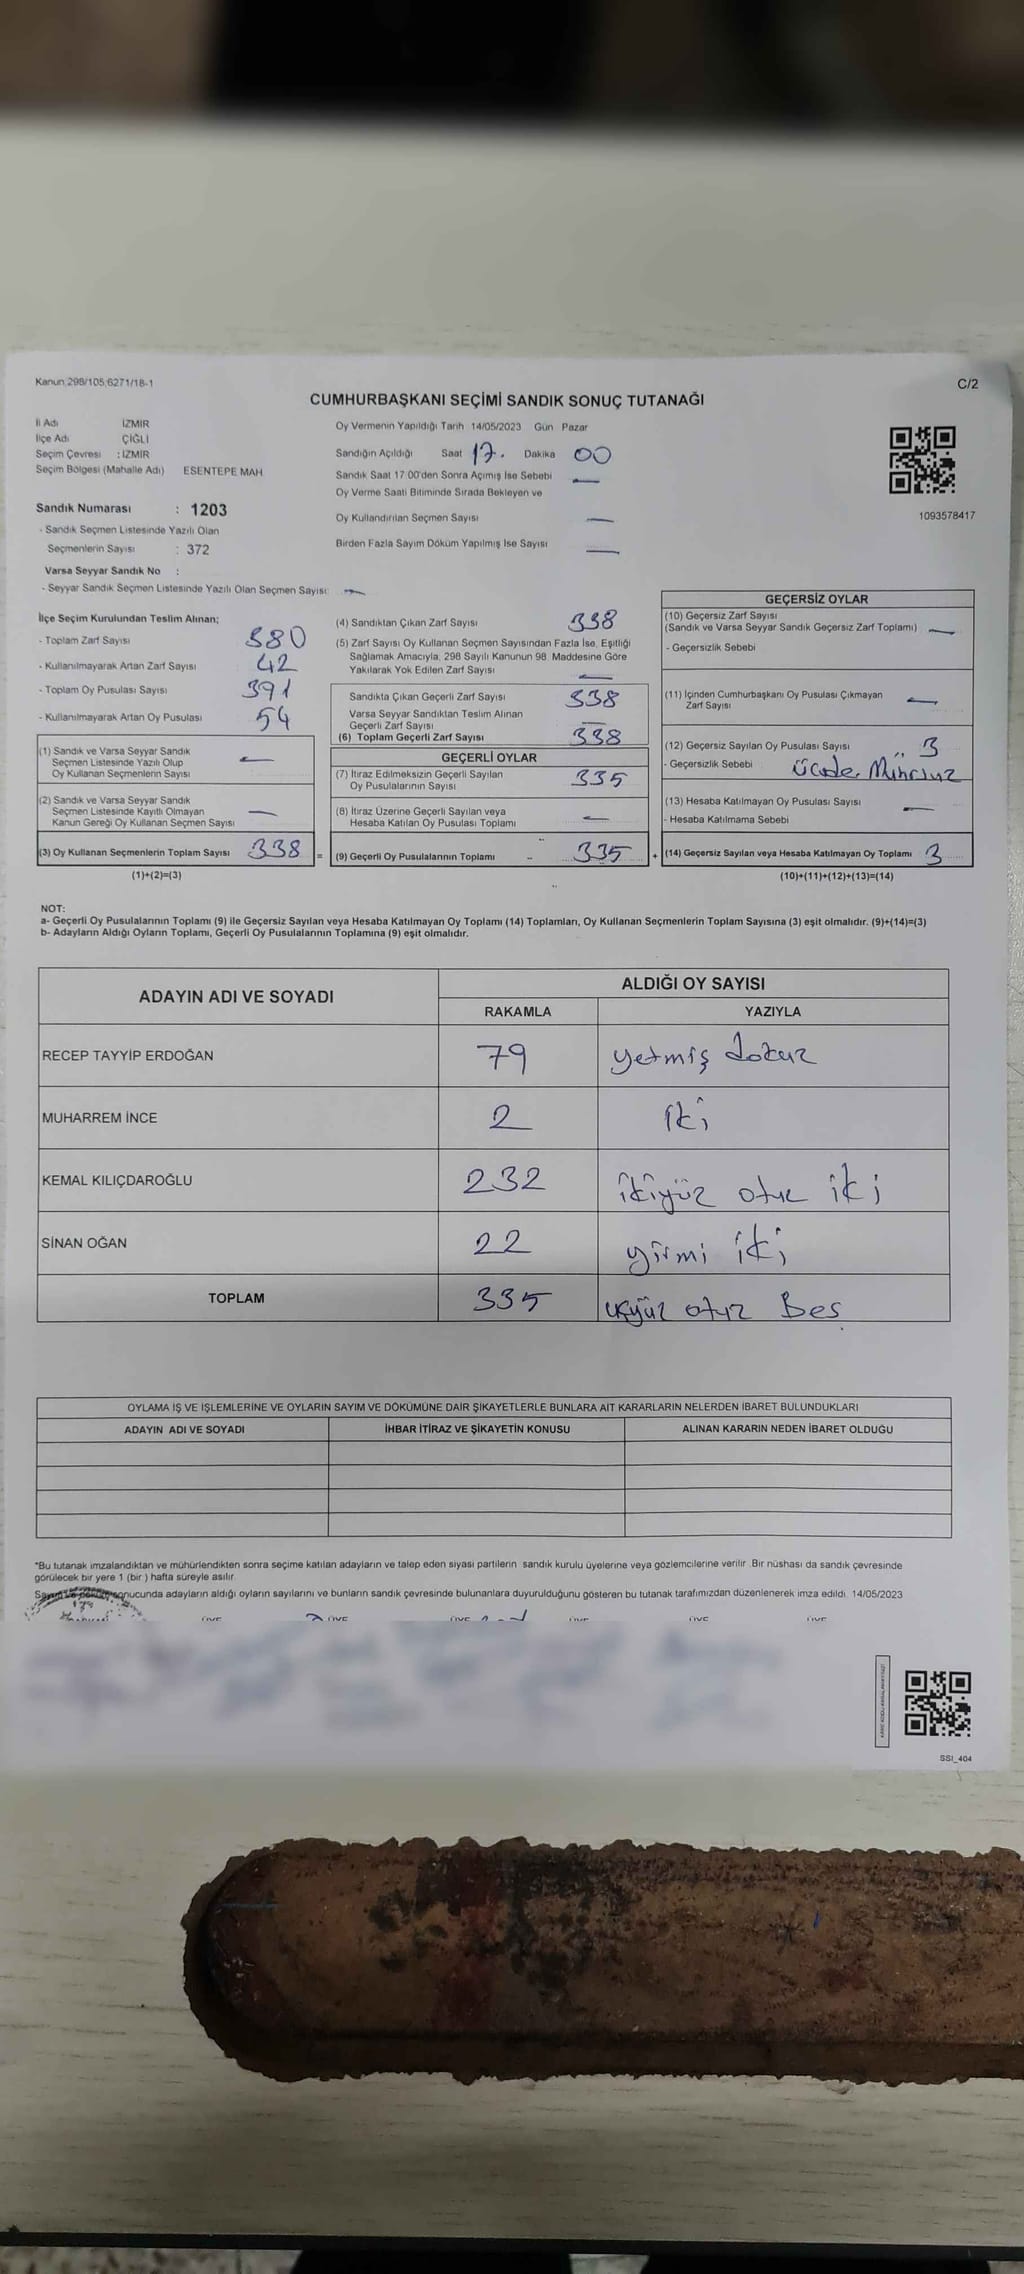 Kanun 298/105,6271/18-1
C/2
CUMHURBAŞKANI SEÇİMİ SANDIK SONUÇ TUTANAĞI
İl Adı İZMİR
İlçe Adı ÇİĞLİ
Seçim Çevresi : İZMİR
Seçim Bölgesi (Mahalle Adı) ESENTEPE MAH
Sandık Numarası : 1203
- Sandık Seçmen Listesinde Yazılı Olan
Seçmenlerin Sayısı : 372
Varsa Seyyar Sandık No :
- Seyyar Sandık Seçmen Listesinde Yazılı Olan Seçmen Sayısı: —
Oy Vermenin Yapıldığı Tarih 14/05/2023 Gün Pazar
Sandığın Açıldığı Saat 17. Dakika 00
Sandık Saat 17:00'den Sonra Açımış İse Sebebi —
Oy Verme Saati Bitiminde Sırada Bekleyen ve
Oy Kullandırılan Seçmen Sayısı —
Birden Fazla Sayım Döküm Yapılmış İse Sayısı —
1093578417
İlçe Seçim Kurulundan Teslim Alınan;
- Toplam Zarf Sayısı 380
- Kullanılmayarak Artan Zarf Sayısı 42
- Toplam Oy Pusulası Sayısı 391
- Kullanılmayarak Artan Oy Pusulası 54
(1) Sandık ve Varsa Seyyar Sandık
Seçmen Listesinde Yazılı Olup
Oy Kullanan Seçmenlerin Sayısı —
(2) Sandık ve Varsa Seyyar Sandık
Seçmen Listesinde Kayıtlı Olmayan
Kanun Gereği Oy Kullanan Seçmen Sayısı —
(3) Oy Kullanan Seçmenlerin Toplam Sayısı 338 =
(1)+(2)=(3)
(4) Sandıktan Çıkan Zarf Sayısı 338
(5) Zarf Sayısı Oy Kullanan Seçmen Sayısından Fazla İse, Eşitliği
Sağlamak Amacıyla, 298 Sayılı Kanunun 98. Maddesine Göre
Yakılarak Yok Edilen Zarf Sayısı —
Sandıkta Çıkan Geçerli Zarf Sayısı 338
Varsa Seyyar Sandıktan Teslim Alınan
Geçerli Zarf Sayısı —
(6) Toplam Geçerli Zarf Sayısı 338
GEÇERLİ OYLAR
(7) İtiraz Edilmeksizin Geçerli Sayılan
Oy Pusulalarının Sayısı 335
(8) İtiraz Üzerine Geçerli Sayılan veya
Hesaba Katılan Oy Pusulası Toplamı —
(9) Geçerli Oy Pusulalarının Toplamı 335 +
GEÇERSİZ OYLAR
(10) Geçersiz Zarf Sayısı
(Sandık ve Varsa Seyyar Sandık Geçersiz Zarf Toplamı) —
- Geçersizlik Sebebi
(11) İçinden Cumhurbaşkanı Oy Pusulası Çıkmayan
Zarf Sayısı —
(12) Geçersiz Sayılan Oy Pusulası Sayısı 3
- Geçersizlik Sebebi
(13) Hesaba Katılmayan Oy Pusulası Sayısı —
- Hesaba Katılmama Sebebi
(14) Geçersiz Sayılan veya Hesaba Katılmayan Oy Toplamı 3
(10)+(11)+(12)+(13)=(14)
NOT:
a- Geçerli Oy Pusulalarının Toplamı (9) ile Geçersiz Sayılan veya Hesaba Katılmayan Oy Toplamı (14) Toplamları, Oy Kullanan Seçmenlerin Toplam Sayısına (3) eşit olmalıdır. (9)+(14)=(3)
b- Adayların Aldığı Oyların Toplamı, Geçerli Oy Pusulalarının Toplamına (9) eşit olmalıdır.
ADAYIN ADI VE SOYADI ALDIĞI OY SAYISI
RAKAMLA YAZIYLA
RECEP TAYYİP ERDOĞAN 79 yetmiş dokuz
MUHARREM İNCE 2 iki
KEMAL KILIÇDAROĞLU 232 ikiyüz otuz iki
SİNAN OĞAN 22 yirmi iki
TOPLAM 335 üçyüz otuz Beş
OYLAMA İŞ VE İŞLEMLERİNE VE OYLARIN SAYIM VE DÖKÜMÜNE DAİR ŞİKAYETLERLE BUNLARA AİT KARARLARIN NELERDEN İBARET BULUNDUKLARI
ADAYIN ADI VE SOYADI İHBAR İTİRAZ VE ŞİKAYETİN KONUSU ALINAN KARARIN NEDEN İBARET OLDUĞU
*Bu tutanak imzalandıktan ve mühürlendikten sonra seçime katılan adayların ve talep eden siyasi partilerin sandık kurulu üyelerine veya gözlemcilerine verilir. Bir nüshası da sandık çevresinde
görülecek bir yere 1 (bir) hafta süreyle asılır.
sonucunda adayların aldığı oyların sayılarını ve bunların sandık çevresinde bulunanlara duyurulduğunu gösteren bu tutanak tarafımızdan düzenlenerek imza edildi. 14/05/2023
ÜYE ÜYE ÜYE ÜYE ÜYE ÜYE
SSI_404